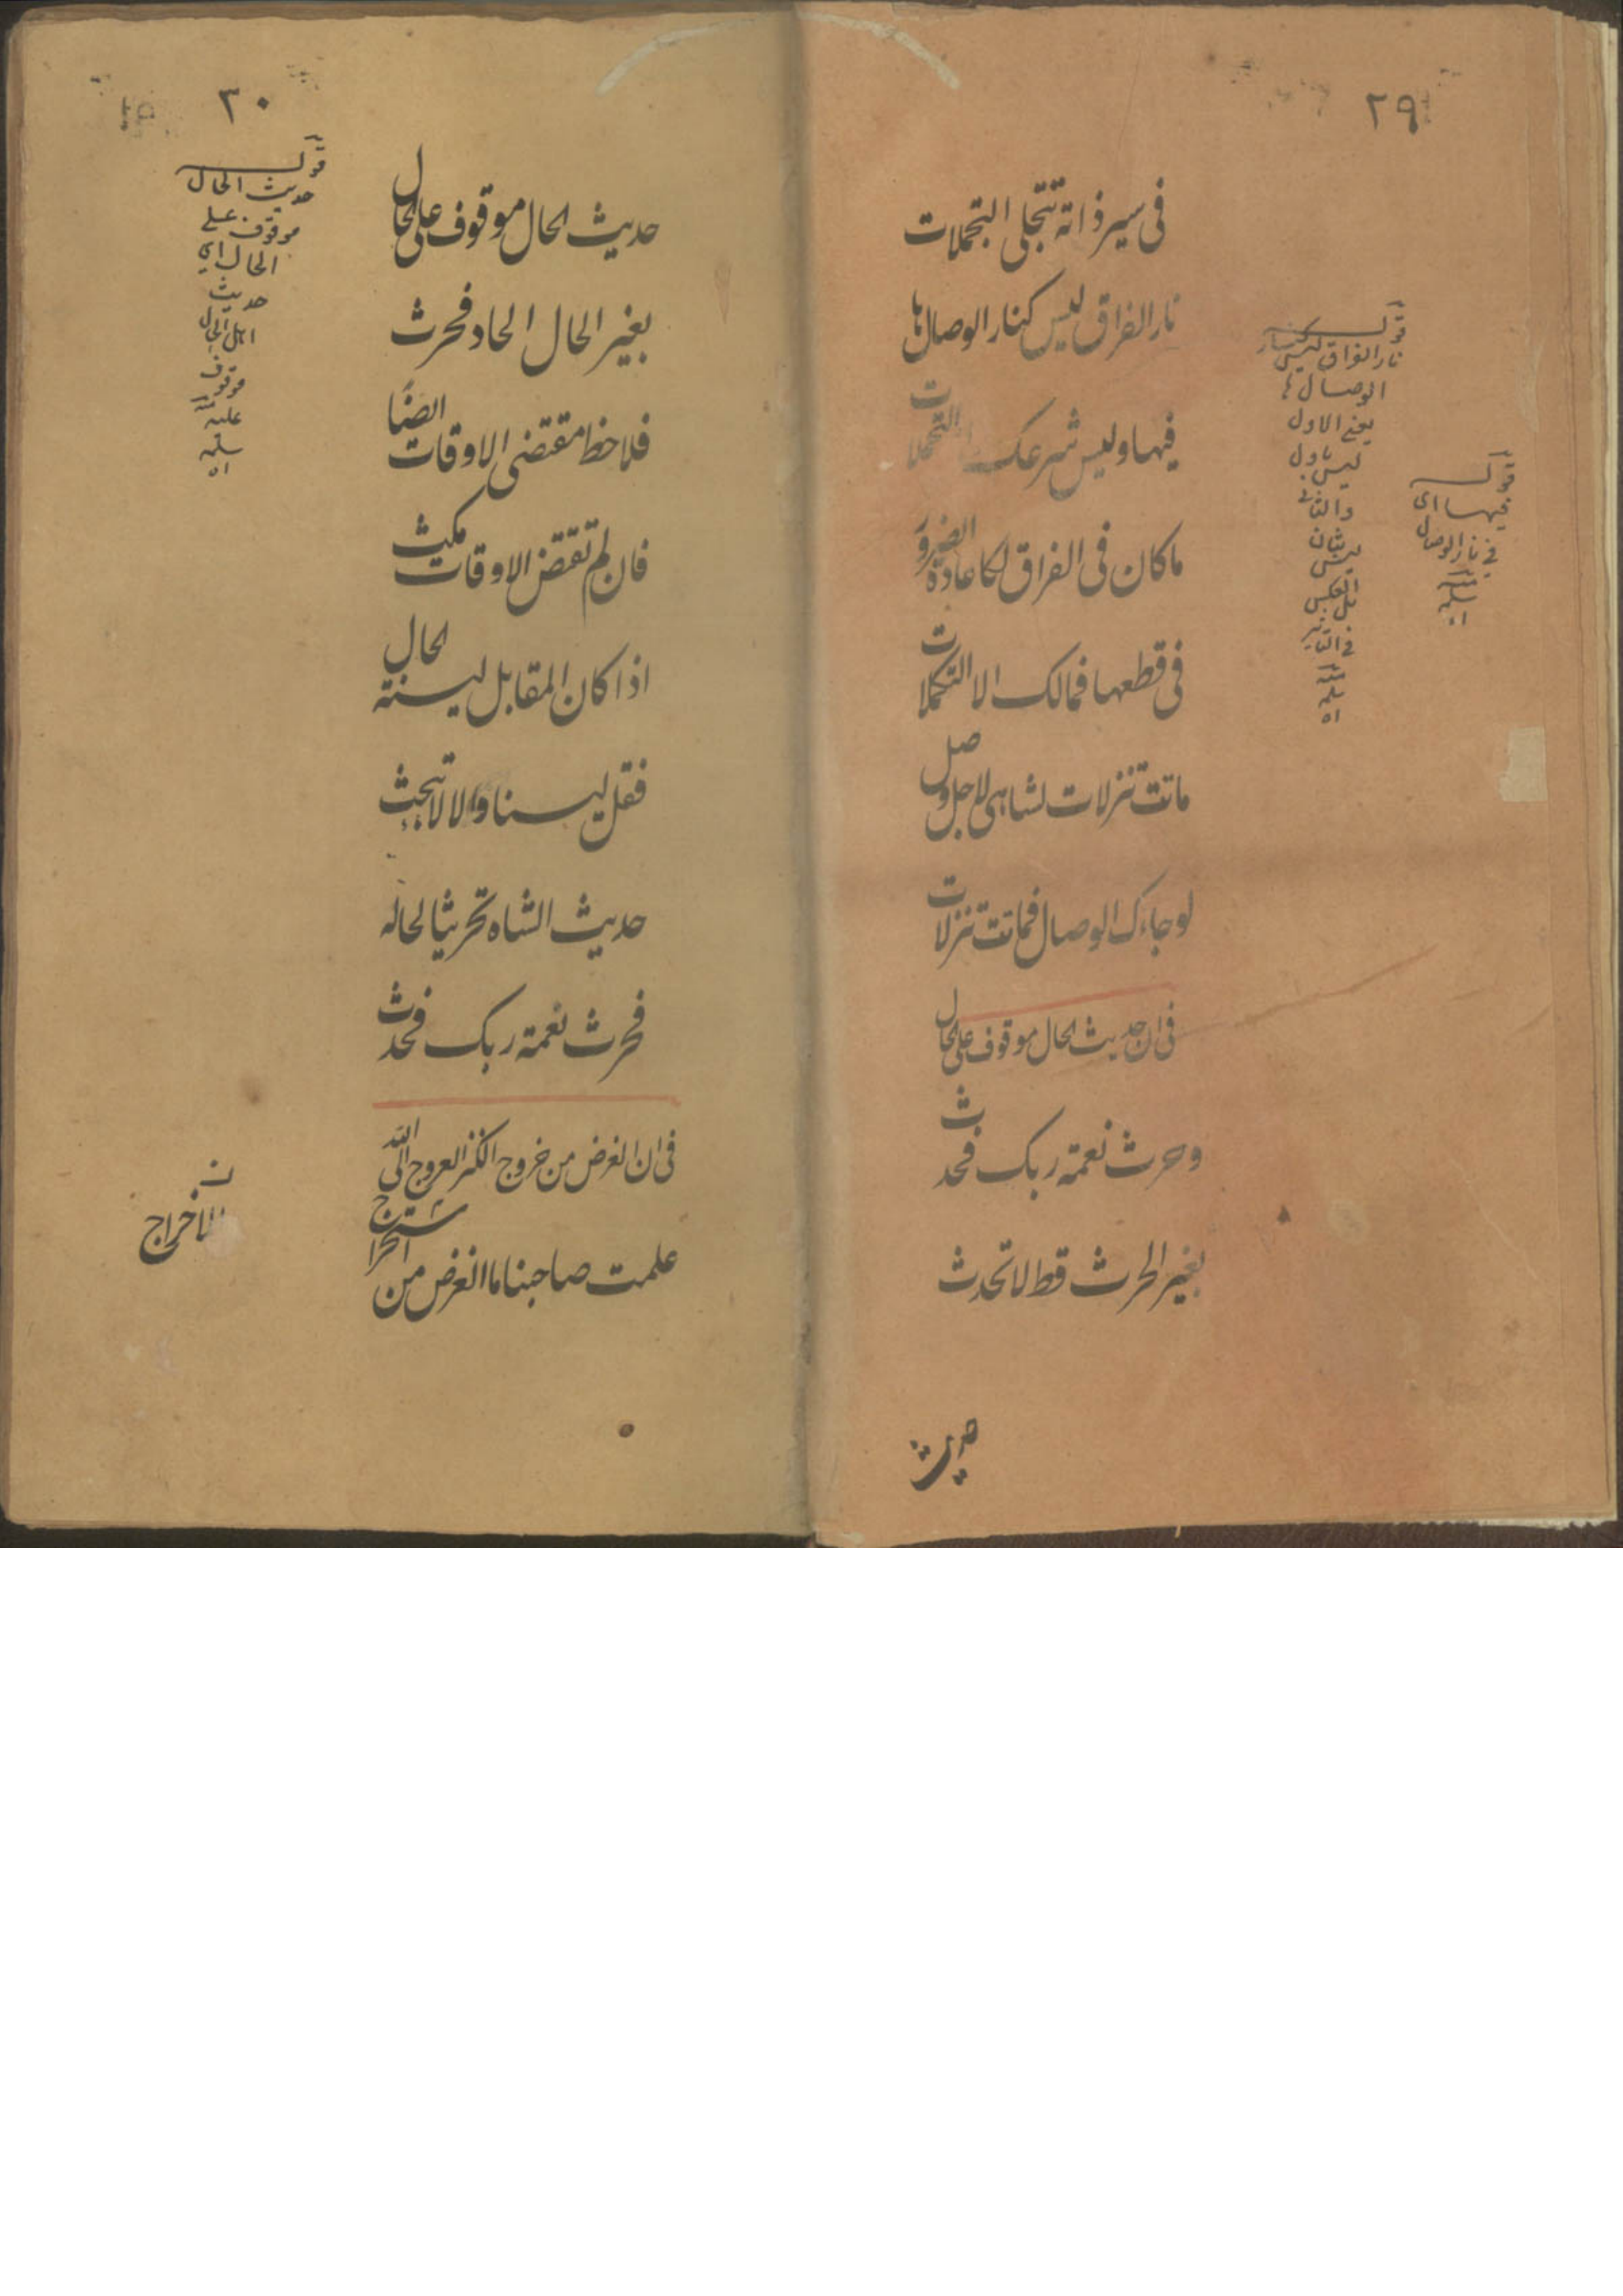 ٢٩
فى سير ذاته تتجلى التجملات
نار الفراق ليس كنار الوصال ها
فيها وليس شرعك التحملات
ماكان فى الفراق لكا عادة الضرور
فى قطعها فمالك الا التكملات
ماتت تنزلات لشاهى لاجل وصل
لو جاءك الوصال فماتت تنزلات
فى ان حديث الحال موقوف على الحال
وحرث نعمة ربك فحدث
بغير الحرث قط لا تحدث
حديث
قوله
نار الفراق ليس كنار
الوصال ها
يعنى الاول
ليس باول
والثانى
ليس بثان
بل العكس
فى التاثير
منه
سلمه
اه
قوله
فيها اى
فى نار الوصال
منه
سلمه
اه
٣٠
حديث الحال موقوف على الحال
بغير الحال الحاد فحرث
فلاحظ مقتضى الاوقات ايضًا
فان لم تقتض الاوقات مكث
اذا كان المقابل ليسنة لحال
فقل ليسنا والا لا تبحث
حديث الشاه تحريثا لحاله
فحرث نعمة ربك فحدث
فى ان الغرض من خروج الكنز العروج الى الله
علمت صاحبنا ما الغرض من استخراج
قوله
حديث الحال
موقوف على
الحال اى
حديث
اهل الحال
موقوف
عليه منه
سلمه
اه
ن
الاخراج